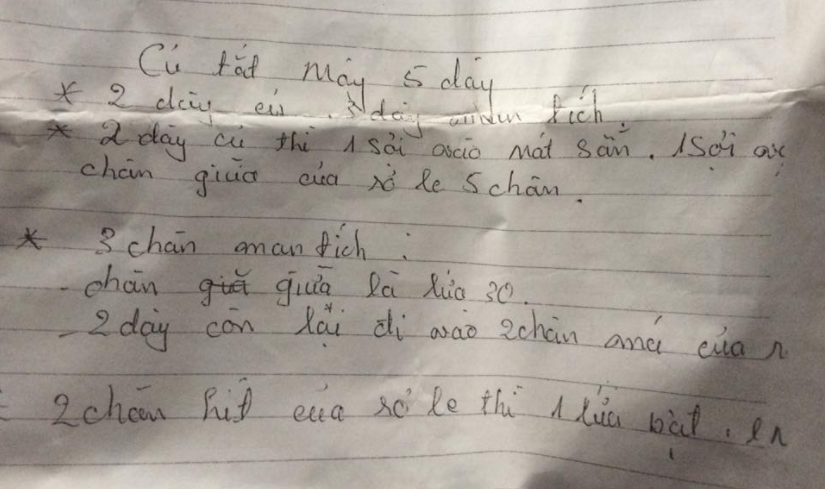 Củ tắt máy 5 dây
* 2 dây củ. 3 dây tích.
* 2 dây củ thì 1 sải vào mát sẵn. 1 sợi
chân giữa của rờ le 5 chân.
* 3 chân man tích:
- chân giữa là lửa 30.
- 2 dây còn lại đi vào 2 chân má của
2 chân hít của rờ le thì 1 lửa bật.